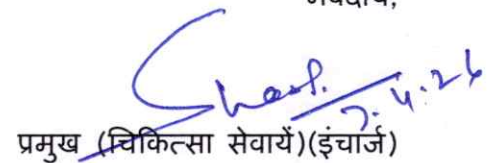 भवदीय,
7.4.26
प्रमुख (चिकित्सा सेवायें)(इंचार्ज)